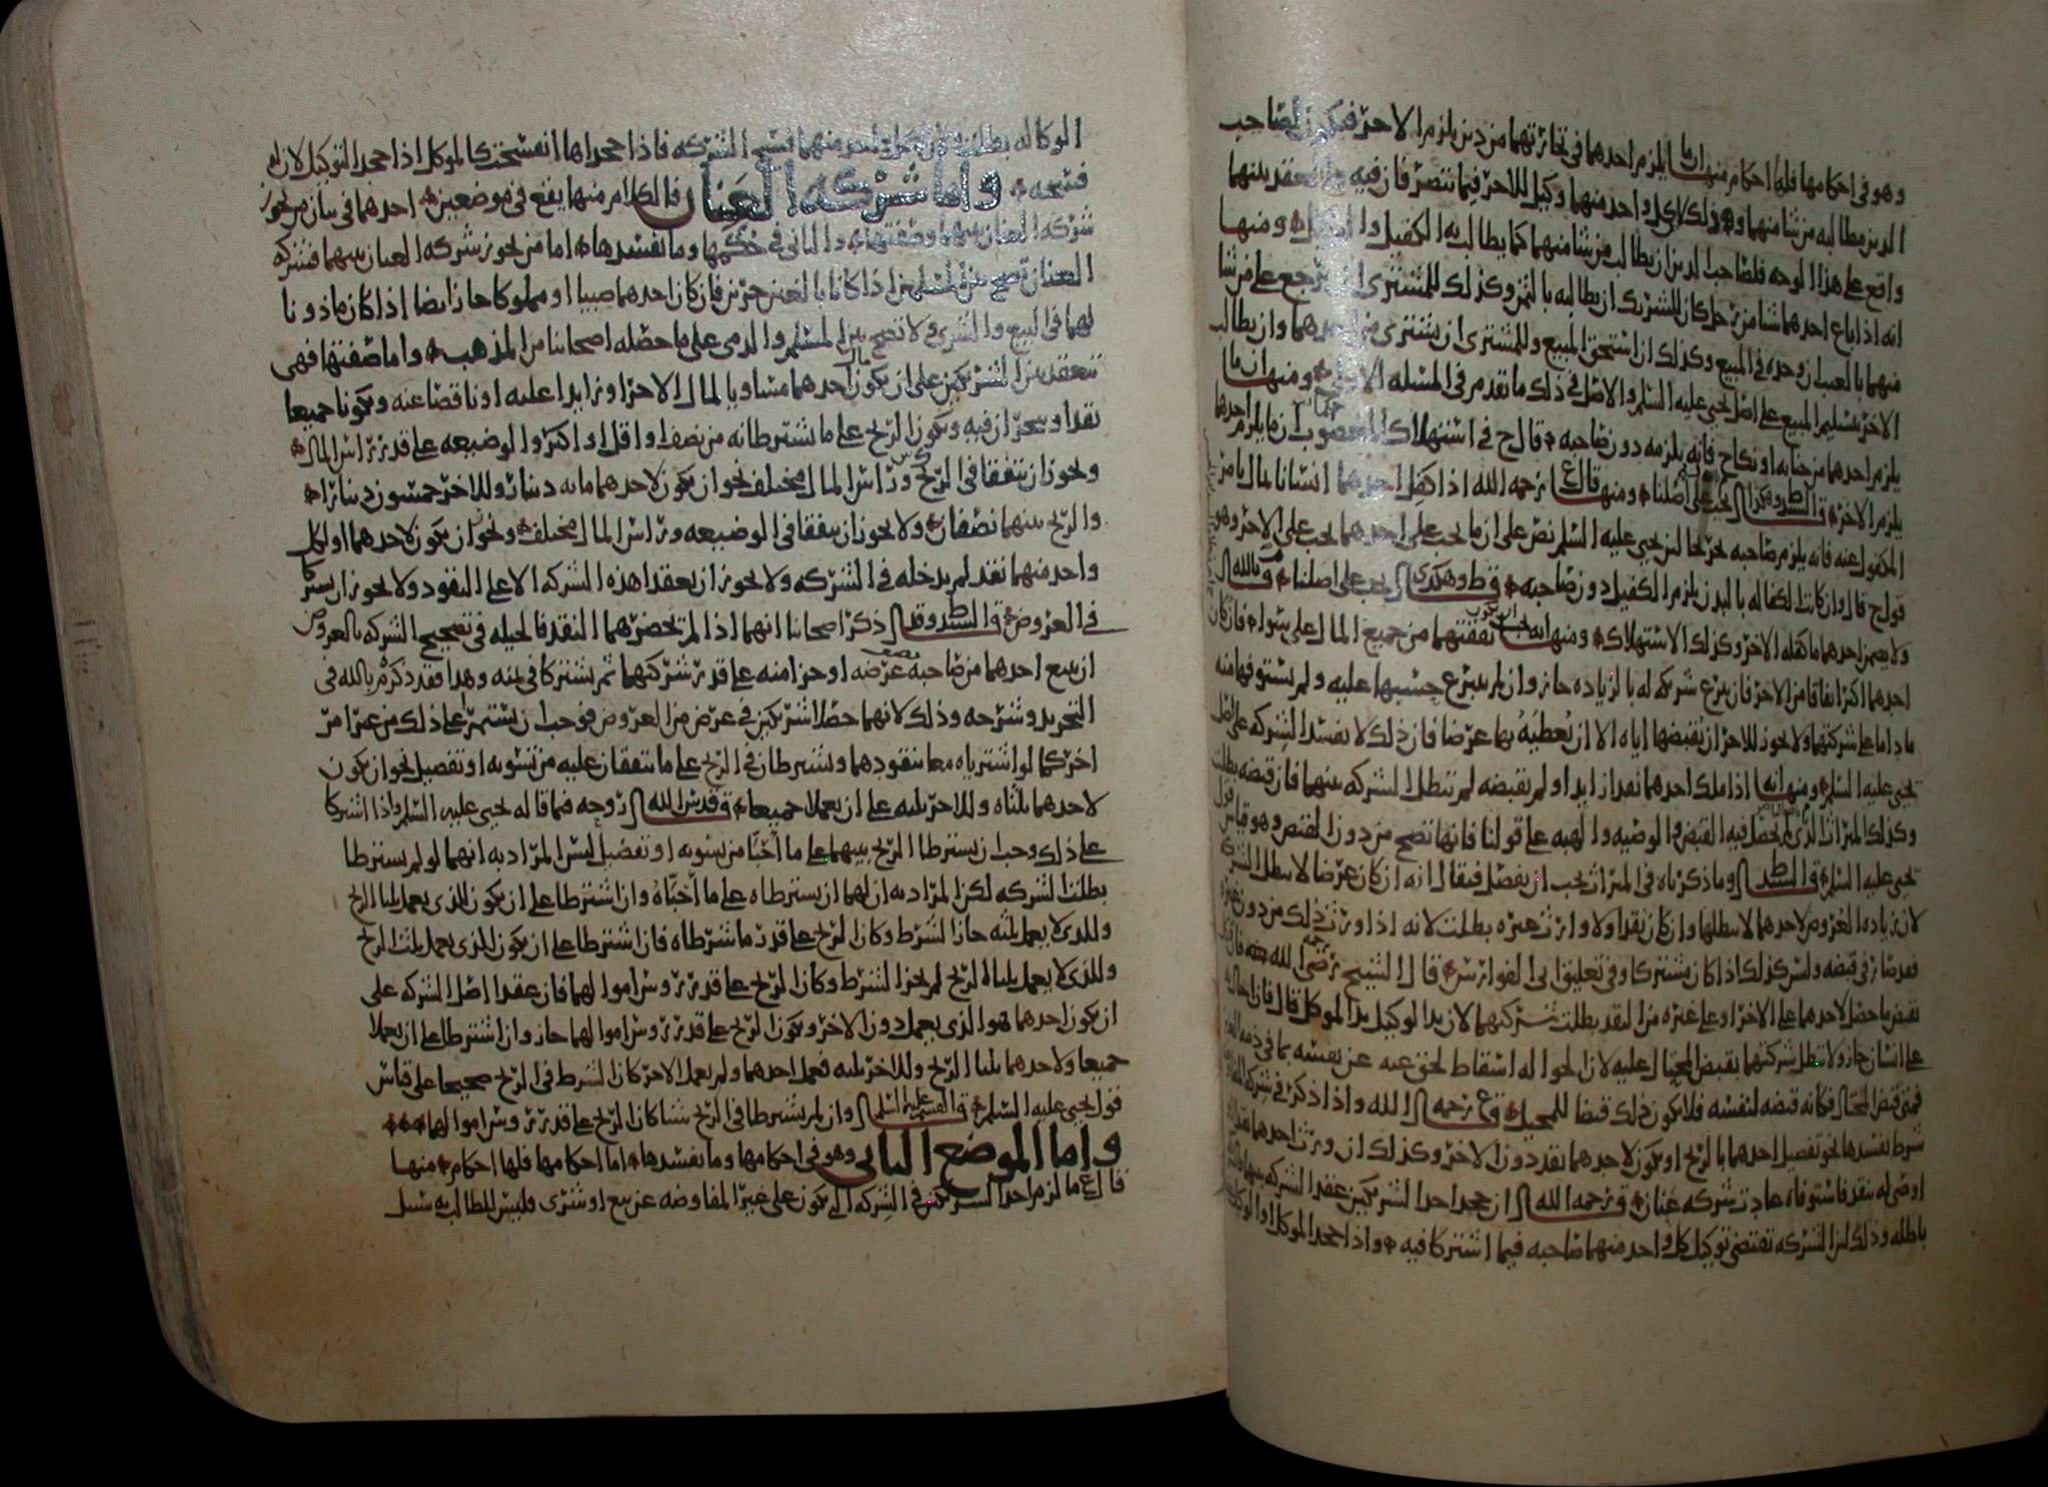 وهو في احكامها فلها احكام منها ان ما يلزم احدهما في تجارتهما من دين يلزم الاخر فيكون لصاحب
الدين مطالبه من شا منهما وذلك لان كل واحد منهما وكيل للاخر فيما تصرفا فيه والعقد بينهما
واقع على هذا الوجه فلصاحب الدين ان يطالب من شا منهما كما يطالب به الكفيل و ومنها
انه اذا باع احدهما شيا من رجل كان للشريك ان يطالبه بالثمن وكذلك للمشتري ان يرجع على من شا
منهما بالعيب ان وجده في المبيع وكذلك ان استحق المبيع وللمشتري ان يشتري من احدهما وان يطالب
الاخر بتسليم المبيع على اصل يحيى عليه السلم والاصل في ذلك ما تقدم في المسئله الاولى ومنها ان ما
يلزم احدهما من جنايه او نكاح فانه يلزمه دون صاحبه قال ح في استهلاك المغصوب ان ما يلزم احدهما
يلزم الاخر قال السيد وهكذا يجب على اصلنا ومنها قال ع رحمه الله اذا كفل احدهما انسانا بمال بامر
المكفول عنه فانه يلزم صاحبه تخريجا لان يحيى عليه السلم نص على ان ما يجب على احدهما يجب على الاخر وهو
قول ح قال وان كانت الكفاله بالبدن يلزم الكفيل دون صاحبه قال ط وهكذى يجب على اصلنا قال م بالله
ولا يضمن احدهما ما كفله الاخر وكذلك الاستهلاك ومنها انه يجب ان يكون نفقتهما من جميع المال على سوا فان كان
احدهما اكثر انفاقا من الاخر فان تبرع شريكه له بالزياده جاز وان لم يتبرع حسبها عليه ولم يستوفها منه
ما داما على شركتهما ولا يجوز للاخر ان يقبضها اياه الا ان يعطيه بها عرضا فان ذلك لا يفسد الشركه على اصل
يحيى عليه السلم ومنها انه اذا ملك احدهما نقدا زايدا ولم يقبضه لم تبطل الشركه بينهما فان قبضه بطلت
وكذلك الميراث الذي لم يحصل فيه القبض والوصيه والهبه على قولنا فانها تصح من دون القبض وهو قياس قول
يحيى عليه السلم قال السيد ط وما ذكرناه في الميراث يجب ان يفصل فيقال انه ان كان عرضا لا تبطل الشركه
لان زياده العروض لاحدهما لا تبطلها وان كان نقدا ولا وارث غيره بطلت لانه اذا ورث ذلك من دون غيره
فقد صار في قبضه وليس كذلك اذا كان مشتركا وفي تعليق بن ابي الفوارس قال الشيخ رضي الله عنه فان
نقض ما حصل لاحدهما على الاخر او على غيره من النقد بطلت شركتهما لان يد الوكيل يد الموكل قال فان احاله
على انسان جاز ولا تبطل شركتهما بقبض المحتال عليه لان الحواله اسقاط لحق عنه عن نفسه بما في ذمه الغير
فمتى قبض المحتال فكانه قبضه لنفسه فلا يكون ذلك قبضا للمحيل قال ع رحمه الله واذا ذكر في شركه المفاوضه
شرط يفسدها نحو تفضيل احدهما بالربح او يكون لاحدهما نقد دون الاخر وكذلك ان ورث احدهما نقدا
اوصي له بنقد فاستوفاه عادت شركه عنان قال رحمه الله ان جحد احد الشريكين عقد الشركه بينهما
باطله وذلك لان الشركه تقتضي توكيل كل واحد منهما صاحبه فيما اشتركا فيه واذا جحد الموكل او الوكيل
الوكاله بطلت ولان لكل واحد منهما فسخ الشركه فاذا جحداها انفسخت كالموكل اذا جحد التوكيل لان له
فسخه واما شركه العنان فالكلام منها يقع في موضعين احدهما في بيان من تجوز
شركه العنان بينهما وصفتها والثاني في حكمها وما يفسدها اما من تجوز شركه العنان بينهما فشركه
العنان تصح من المسلمين اذا كانا بالغين حرين فان كان احدهما صبيا او مملوكا جاز ايضا اذا كان ماذونا
لهما في البيع والشرى ولا تصح بين المسلم والذمي على ما حصله اصحابنا من المذهب واما صفتها فهي
تنعقد بين الشريكين على ان يكون مال احدهما مساويا لمال الاخر او زايدا عليه او ناقصا عنه ويكونا جميعا
نقدا ويتجران فيه ويكون الربح على ما يشترطانه من نصف او اقل او اكثر والوضيعه على قدر راس المال
ويجوز ان يتفقا في الربح وراس المال مختلف نحو ان يكون لاحدهما مايه دينار وللاخر خمسون دينارا
والربح بينهما نصفان ولا يجوز ان يتفقا في الوضيعه وراس المال مختلف ونحو ان يكون لاحدهما او لكل
واحد منهما نقد لم يدخله في الشركه ولا يجوز ان يعقدا هذه الشركه الا على النقود ولا يجوز ان يشتركا
في العروض قال السيد ط وقد ذكر اصحابنا انهما اذا لم يحضرهما النقد فالحيله في تصحيح الشركه بالعروض
ان يبيع احدهما من صاحبه نصف عرضه او جزا منه على قدر شركتهما ثم يشتركا في ثمنه وهذا فقد ذكره م بالله في
التجريد وشرحه وذلك لانهما حصلا شريكين في عرض من العروض فوجب ان يستمرا على ذلك من غير امر
اخر كما لو اشترياه معا بنقودهما ويشترطان في الربح على ما يتفقان عليه من تسويه او تفضيل نحو ان يكون
لاحدهما ثلثاه وللاخر ثلثه على ان يعملا جميعا قال قدس الله روحه فما قاله يحيى عليه السلم واذا اشتركا
على ذلك وجب ان يشترطا الربح بينهما على ما احبا من تسويه او تفضيل ليس المراد به انهما لو لم يشترطا
بطلت الشركه لكن المراد به ان لهما ان يشترطاه على ما احباه وان اشترطا على ان يكون للذي يعمل ثلثا الربح
وللذي لا يعمل ثلثه جاز الشرط وكان الربح على قدر ما شرطاه فان اشترطا على ان يكون للذي يعمل ثلث الربح
وللذي لا يعمل ثلثا الربح لم يجز الشرط وكان الربح على قدر روس اموالهما فان عقدا اصل الشركه على
ان يكون احدهما هو الذي يعمل دون الاخر ويكون الربح على قدر روس اموالهما جاز وان اشترطا على ان يعملا
جميعا ولاحدهما ثلثا الربح وللاخر ثلثه فعمل احدهما ولم يعمل الاخر كان الشرط في الربح صحيحا على قياس
قول يحيى عليه السلم قال القسم عليه السلم وان لم يشترطا في الربح شيا كان الربح على قدر روس اموالهما
واما الموضع الثاني وهو في احكامها وما يفسدها اما احكامها فلها احكام منها
قال ع ما لزم احد الشريكين في الشركه التي تكون على غير المفاوضه عن بيع او شرى فليس للطالب به سبيل